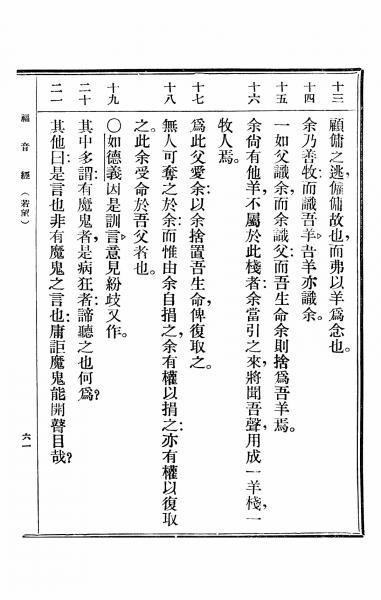 十三　顧傭之逃，僱傭故也，而弗以羊爲念也。
十四　余乃善牧：而識吾羊，吾羊亦識余。
十五　一如父識余，而余識父，而吾生命余則捨爲吾羊焉。
十六　余尙有他羊，不屬於此棧者：余當引之來，將聞吾聲，用成一羊棧，一
牧人焉。
十七　爲此父愛余：以余捨置吾生命，俾復取之。
十八　無人可奪之於余：而惟由余自捐之，余有權以捐之：亦有權以復取
之。此余受命於吾父者也。
十九　〇如德義因是訓言，意見紛歧又作。
二十　其中多謂：有魔鬼者，是病狂者：諦聽之也何爲？
二一　其他曰：是言也非有魔鬼之言也：庸詎魔鬼能開瞽目哉？
福音經　（若望）　六一